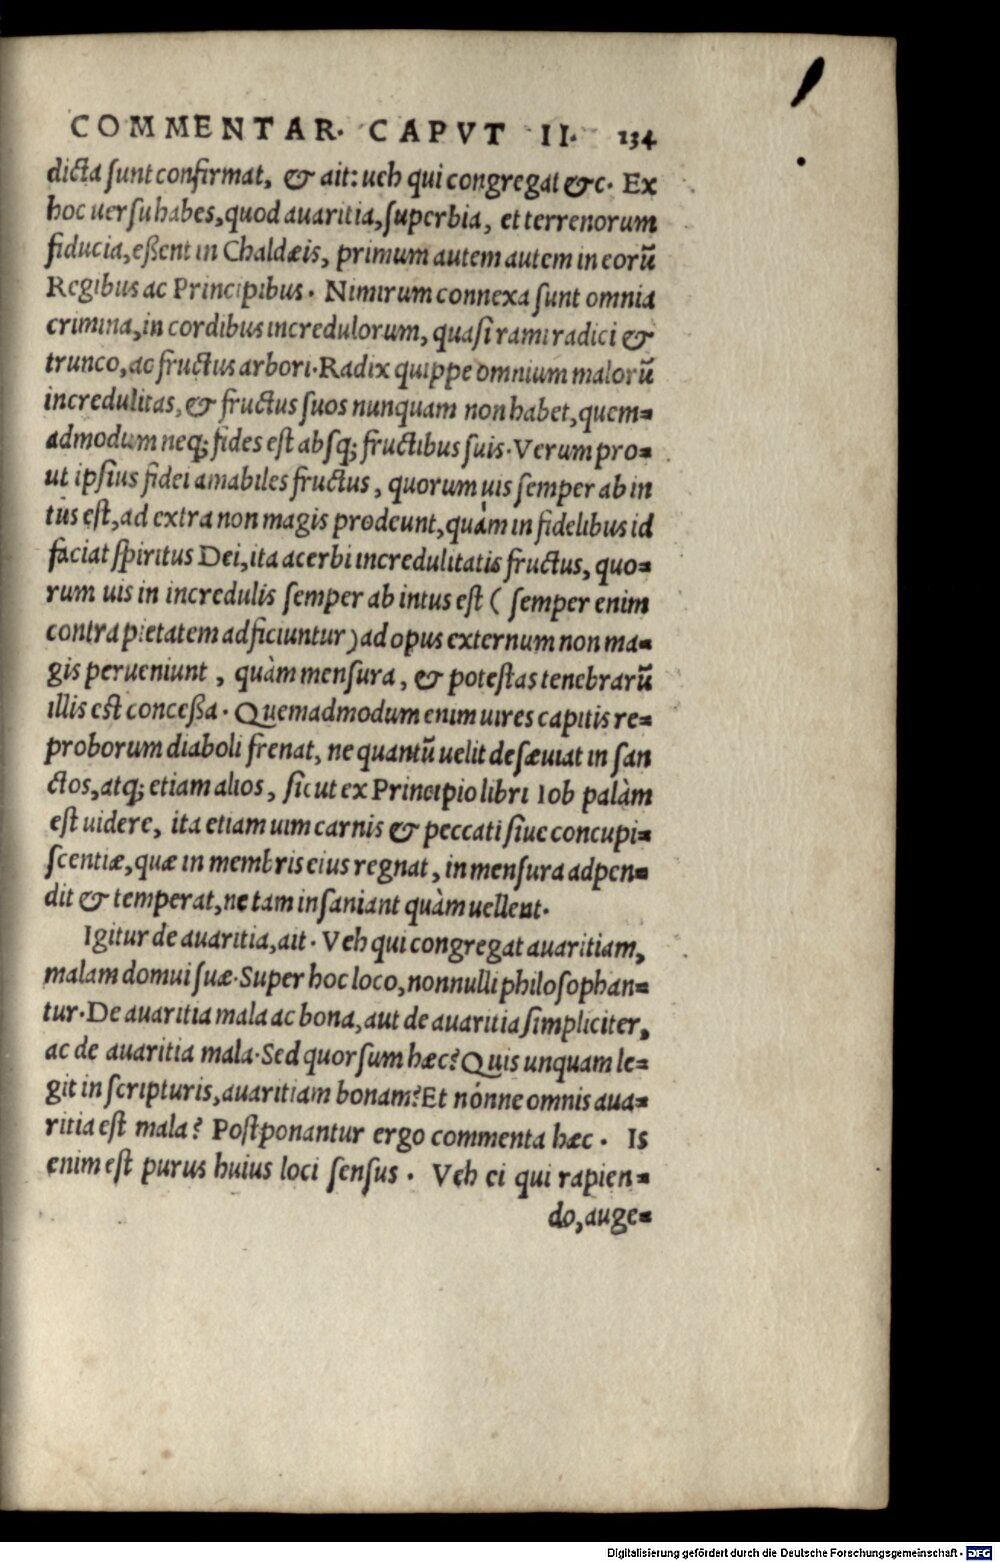 COMMENTAR. CAPVT II. 134
dicta sunt confirmat, & ait: ueh qui congregat &c. Ex
hoc uersu habes, quod auaritia, superbia, et terrenorum
fiducia, eßent in Chaldæis, primum autem autem in eorũ
Regibus ac Principibus. Nimirum connexa sunt omnia
crimina, in cordibus incredulorum, quasi rami radici &
trunco, ac fructus arbori. Radix quippe omnium malorũ
incredulitas, & fructus suos nunquam non habet, quem=
admodum neq; fides est absq; fructibus suis. Verum pro=
ut ipsius fidei amabiles fructus, quorum uis semper ab in
tus est, ad extra non magis prodeunt, quàm in fidelibus id
faciat spiritus Dei, ita acerbi incredulitatis fructus, quo=
rum uis in incredulis semper ab intus est ( semper enim
contra pietatem adficiuntur ) ad opus externum non ma=
gis perueniunt, quàm mensura, & potestas tenebrarũ
illis est conceßa. Quemadmodum enim uires capitis re=
proborum diaboli frenat, ne quantũ uelit desæuiat in san
ctos, atq; etiam alios, sicut ex Principio libri Iob palàm
est uidere, ita etiam uim carnis & peccati siue concupi=
scentiæ, quæ in membris eius regnat, in mensura adpen=
dit & temperat, ne tam insaniant quàm uellent.
Igitur de auaritia, ait. Veh qui congregat auaritiam,
malam domui suæ. Super hoc loco, nonnulli philosophan=
tur. De auaritia mala ac bona, aut de auaritia simpliciter,
ac de auaritia mala. Sed quorsum hæc? Quis unquam le=
git in scripturis, auaritiam bonam? Et nónne omnis aua=
ritia est mala? Postponantur ergo commenta hæc. Is
enim est purus huius loci sensus. Veh ei qui rapien=
do, auge=
Digitalisierung gefördert durch die Deutsche Forschungsgemeinschaft - DFG